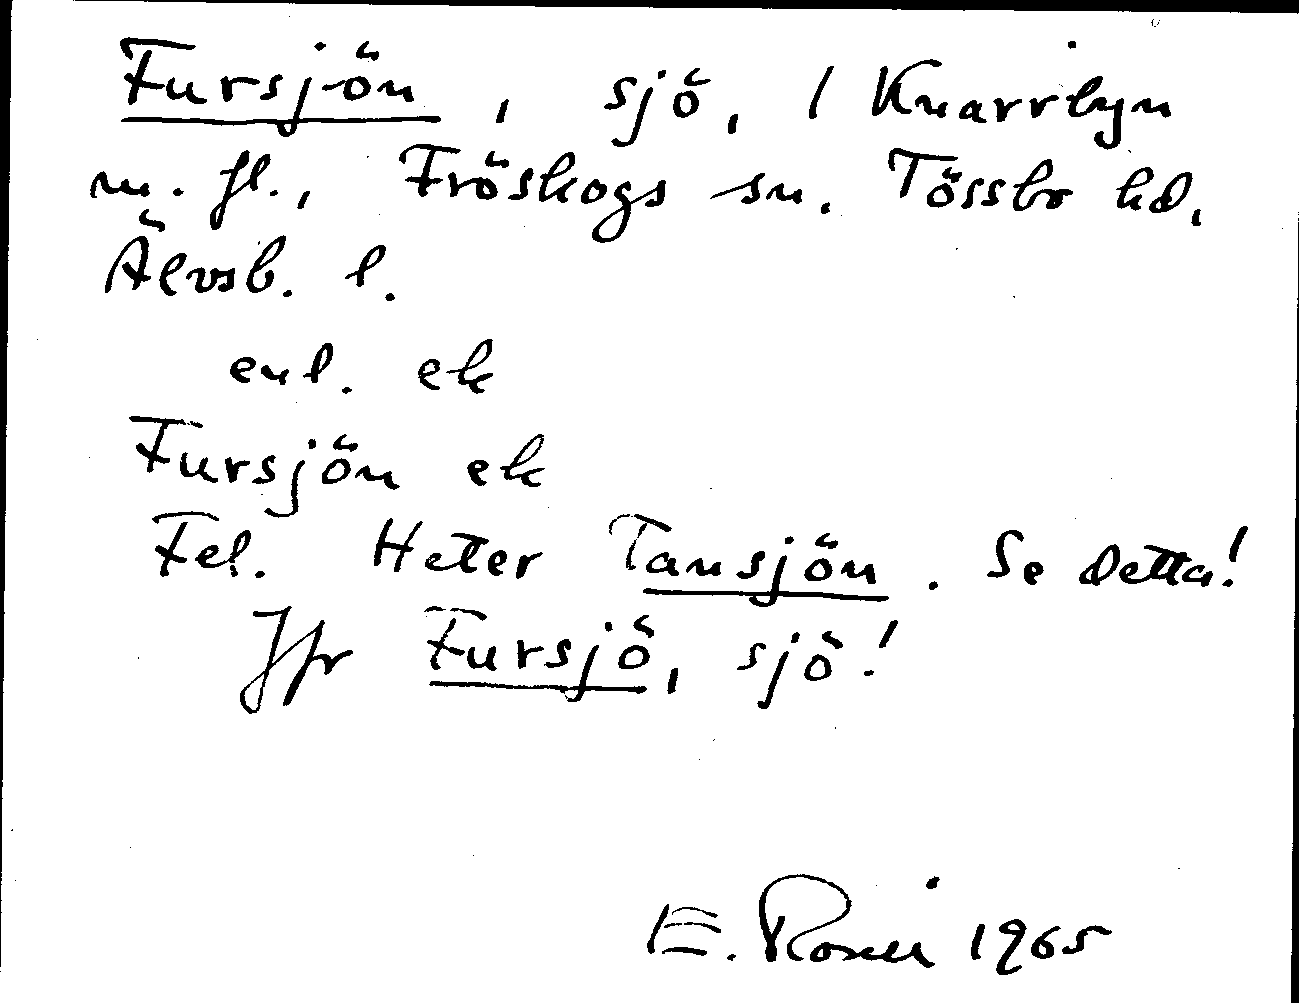 Fursjön, sjö, / Knarrbyn
m. fl., Fröskogs sn. Tössbo hd.
Älvsb. l.
enl. ek
Fursjön ek
Fel. Heter Tansjön. Se detta!
Jfr Fursjö, sjö!
E. 1965